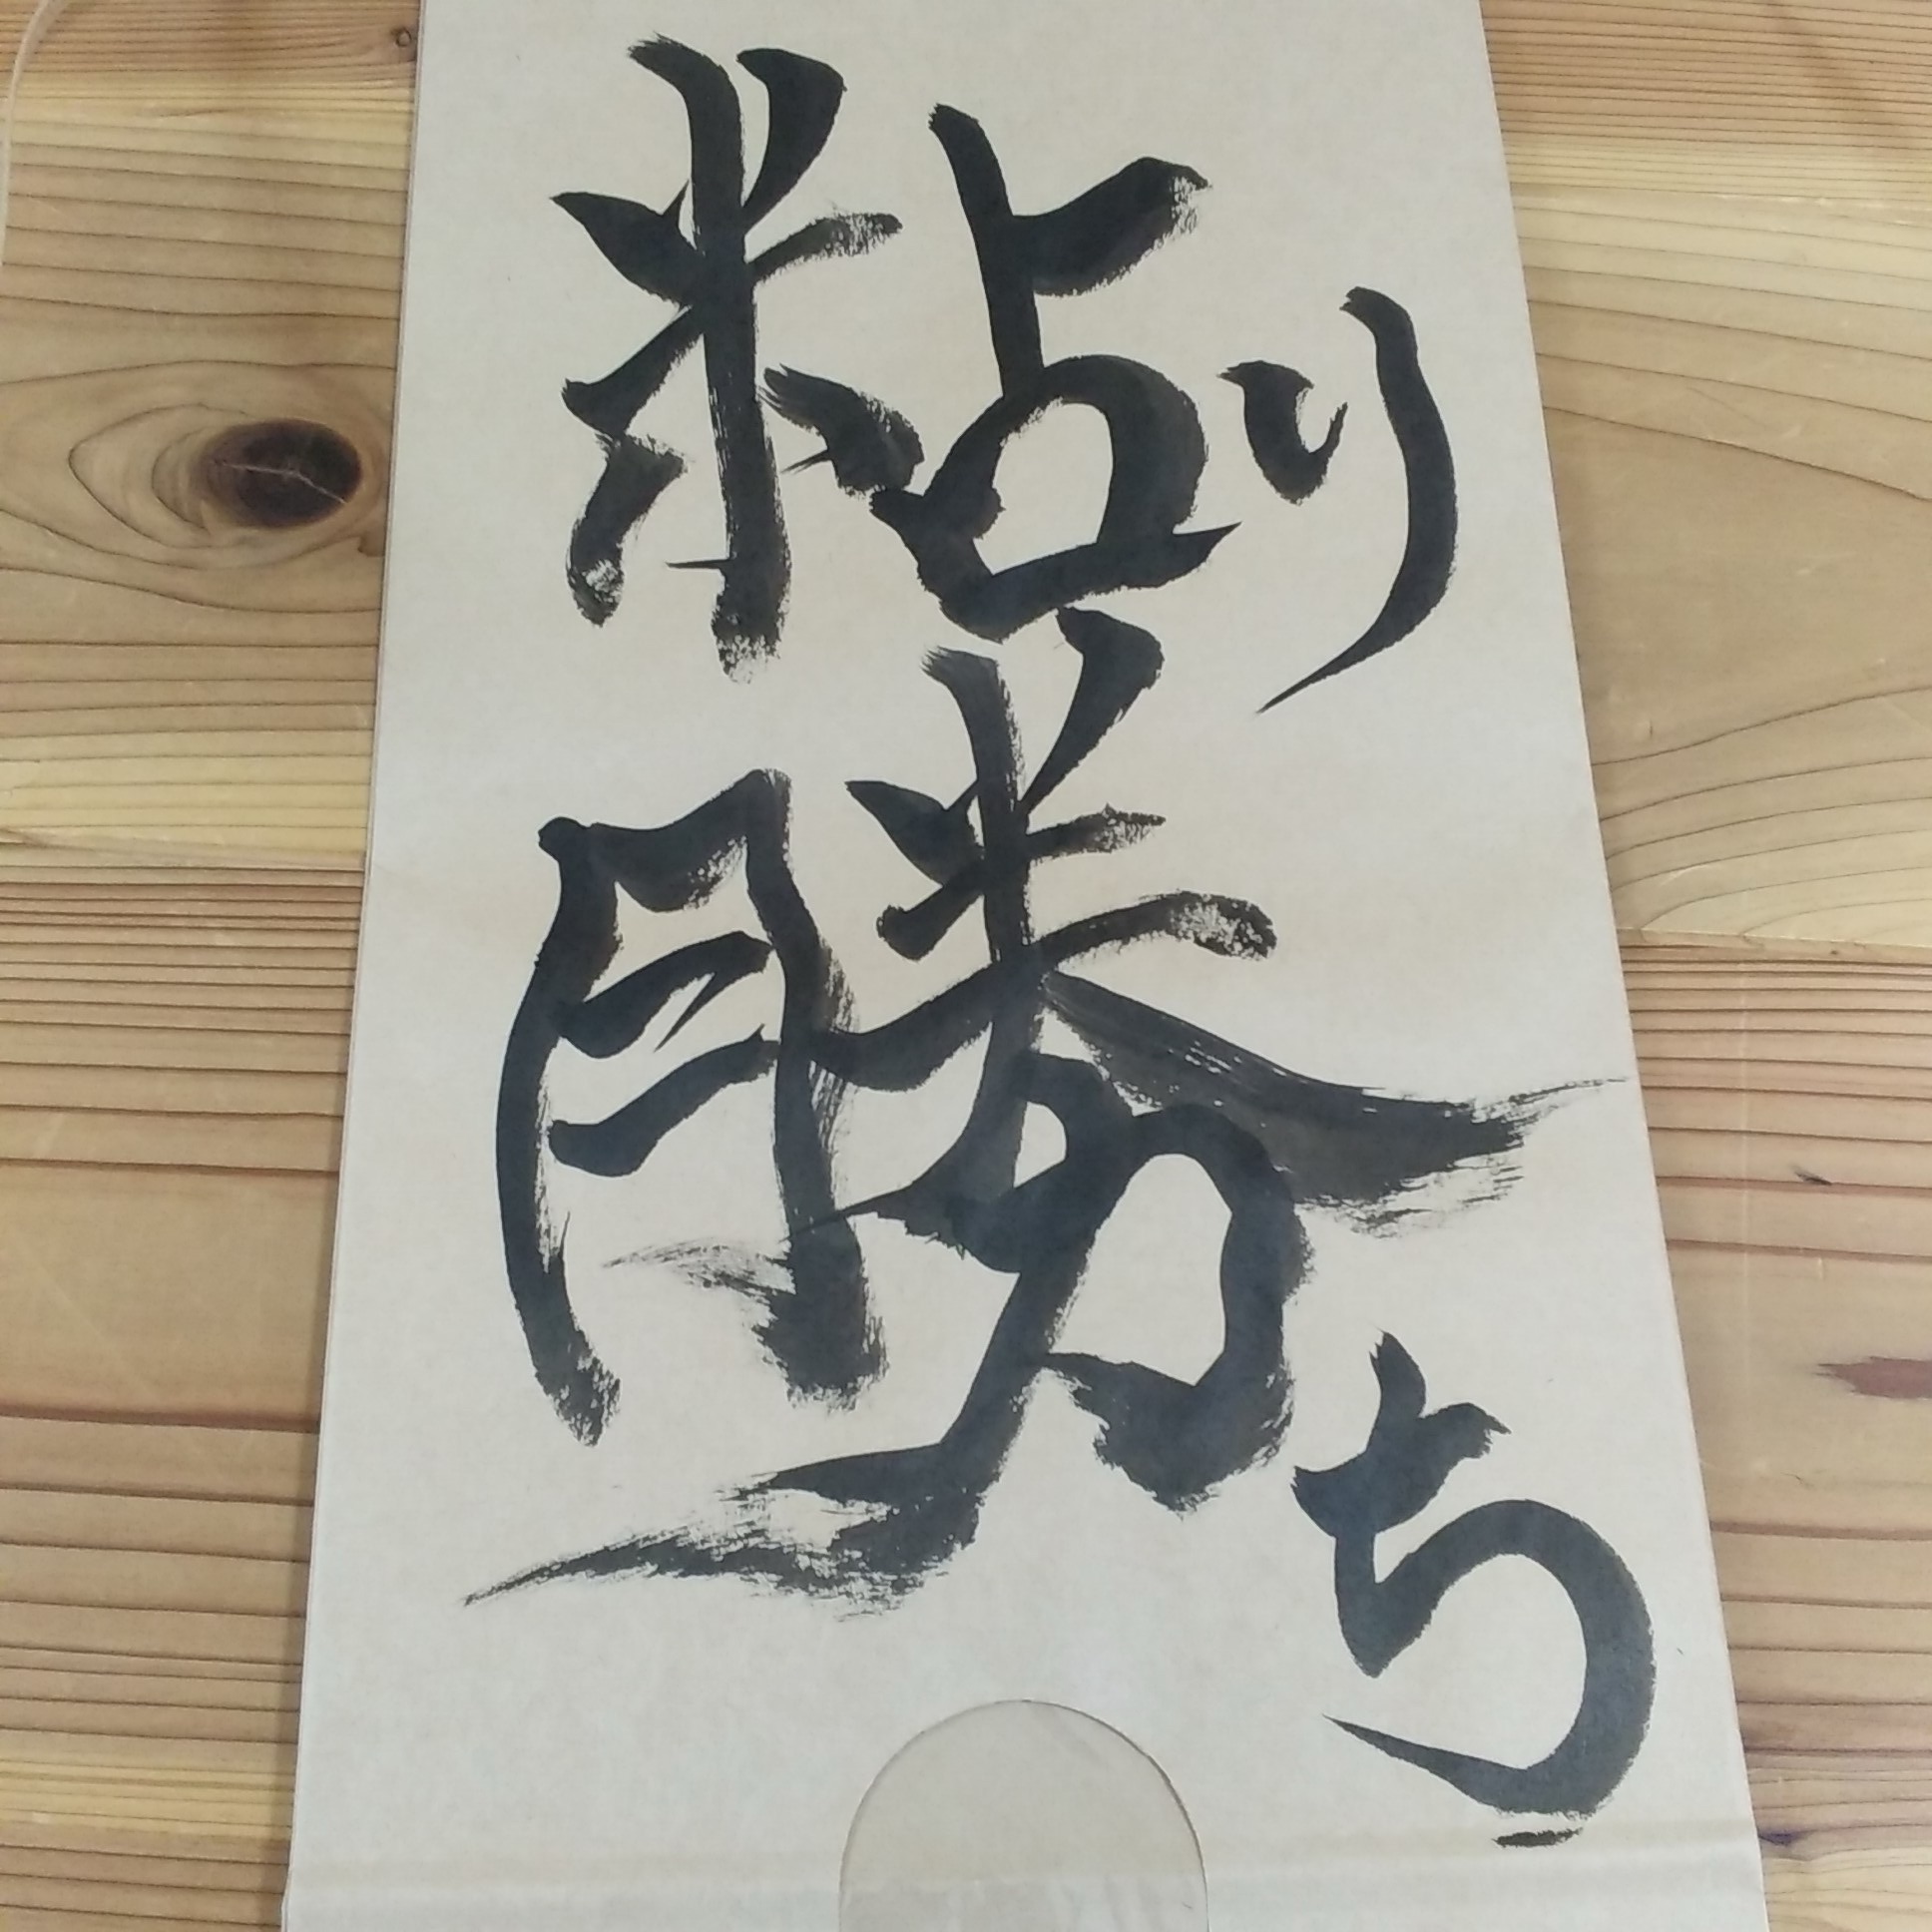 粘り勝ち